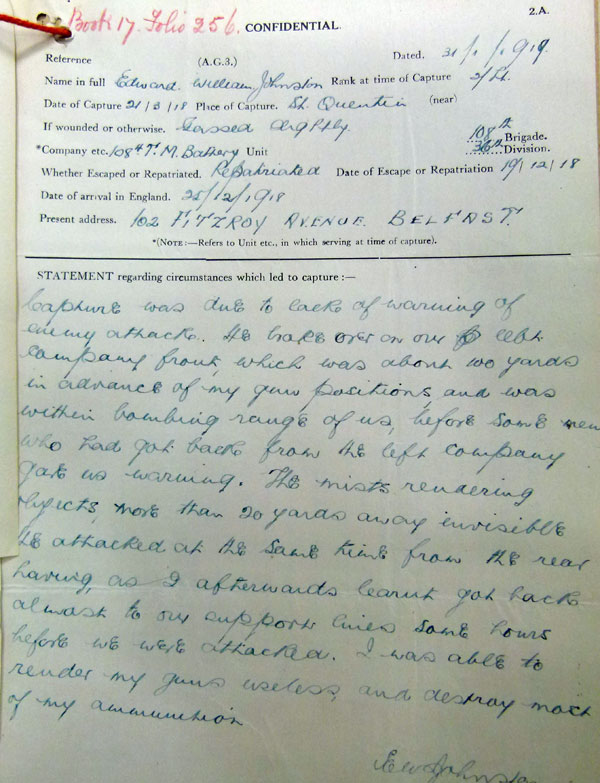 Book 17. Folio 256.
CONFIDENTIAL.
2.A.
Reference (A.G.3.) Dated. 31/1/1919
Name in full Edward William Johnston Rank at time of Capture 2/Lt.
Date of Capture 21/3/18 Place of Capture. St Quentin (near)
If wounded or otherwise. Gassed slightly
108th Brigade.
*Company etc. 108th T. M. Battery Unit 36th Division.
Whether Escaped or Repatriated. Repatriated Date of Escape or Repatriation 19/12/18
Date of arrival in England. 25/12/1918
Present address. 102 FITZROY AVENUE. BELFAST.
*(NOTE:—Refers to Unit etc., in which serving at time of capture).
STATEMENT regarding circumstances which led to capture :—
Capture was due to lack of warning of
enemy attack. He broke over on our left
company front, which was about 100 yards
in advance of my gun positions, and was
within bombing range of us, before some men
who had got back from the left company
gave us warning. The mists rendering
objects more than 20 yards away invisible
He attacked at the same time from the rear
having, as I afterwards learnt got back
almost to our support lines some hours
before we were attacked. I was able to
render my guns useless, and destroy most
of my ammunition
EW Johnston